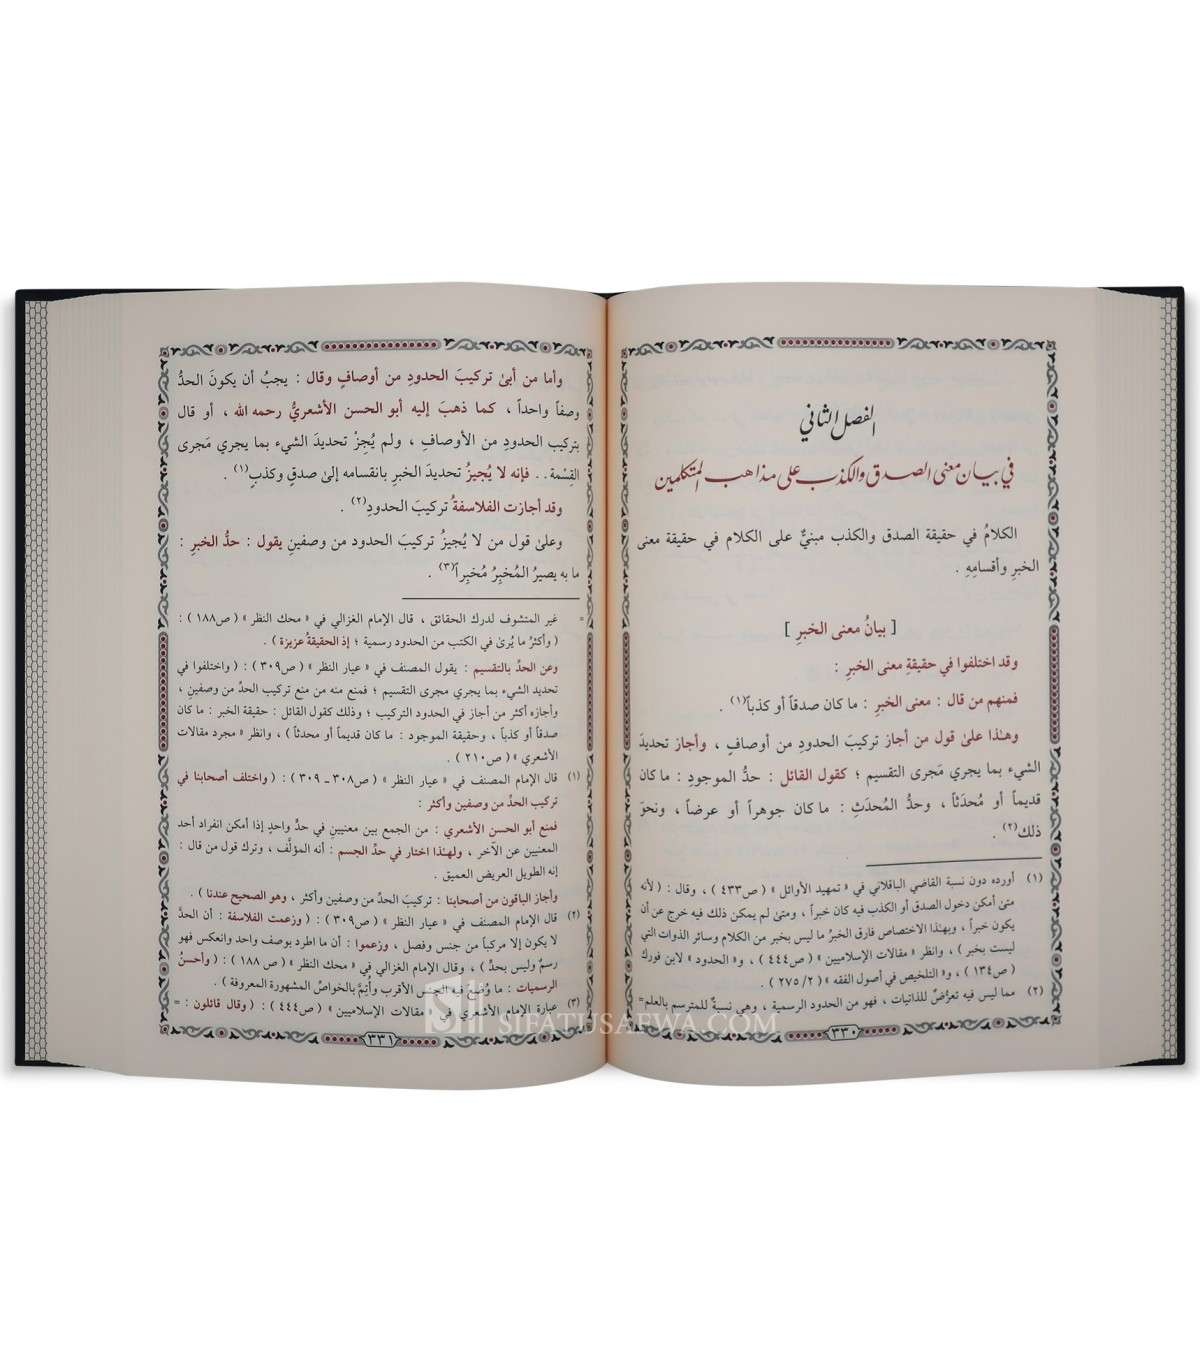 الفصل الثاني
في بيان معنى الصدق والكذب على مذاهب المتكلمين
الكلامُ في حقيقة الصدق والكذب مبنيٌّ على الكلام في حقيقة معنى
الخبرِ وأقسامِهِ .
[ بيانُ معنى الخبرِ ]
وقد اختلفوا في حقيقةِ معنى الخبرِ :
فمنهم من قال : معنى الخبرِ : ما كان صدقاً أو كذباً(١) .
وهٰذا علىٰ قول من أجاز تركيبَ الحدودِ من أوصافٍ ، وأجاز تحديدَ
الشيء بما يجري مَجرى التقسيم ؛ كقول القائل : حدُّ الموجودِ : ما كان
قديماً أو مُحدَثاً ، وحدُّ المُحدَثِ : ما كان جوهراً أو عرضاً ، ونحوَ
ذلك(٢) .
(١) أورده دون نسبة القاضي الباقلاني في « تمهيد الأوائل » ( ص٤٣٣ ) ، وقال : ( لأنه
متىٰ أمكن دخول الصدق أو الكذب فيه كان خبراً ، ومتىٰ لم يمكن ذلك فيه خرج عن أن
يكون خبراً ، وبهٰذا الاختصاص فارق الخبرُ ما ليس بخبر من الكلام وسائر الذوات التي
ليست بخبر ) ، وانظر « مقالات الإسلاميين » ( ص٤٤٤ ) ، و« الحدود » لابن فورك
( ص١٣٤ ) ، و« التلخيص في أصول الفقه » ( ٢/ ٢٧٥ ) .
(٢) مما ليس فيه تعرُّضٌ للذاتيات ، فهو من الحدود الرسمية ، وهي نسبةٌ للمترسم بالعلم=
٣٣٠
وأما من أبىٰ تركيبَ الحدودِ من أوصافٍ وقال : يجبُ أن يكونَ الحدُّ
وصفاً واحداً ، كما ذهبَ إليه أبو الحسن الأشعريُّ رحمه الله ، أو قال
بتركيب الحدودِ من الأوصافِ ، ولم يُجِزْ تحديدَ الشيء بما يجري مَجرى
القِسْمة . . فإنه لا يُجيزُ تحديدَ الخبرِ بانقسامه إلىٰ صدقٍ وكذبٍ(١) .
وقد أجازت الفلاسفةُ تركيبَ الحدودِ(٢) .
وعلىٰ قول من لا يُجيزُ تركيبَ الحدود من وصفينِ يقول : حدُّ الخبرِ :
ما به يصيرُ المُخبِرُ مُخبِراً(٣) .
= غير المتشوف لدرك الحقائق ، قال الإمام الغزالي في « محك النظر » ( ص١٨٨ ) :
( وأكثرُ ما يُرىٰ في الكتب من الحدود رسمية ؛ إذ الحقيقةُ عزيزة ) .
وعن الحدِّ بالتقسيم : يقول المصنف في « عيار النظر » ( ص٣٠٩ ) : ( واختلفوا في
تحديد الشيء بما يجري مجرى التقسيم ؛ فمنع منه من منع تركيب الحدِّ من وصفين ،
وأجازه أكثر من أجاز في الحدود التركيب ؛ وذلك كقول القائل : حقيقة الخبر : ما كان
صدقاً أو كذباً ، وحقيقة الموجود : ما كان قديماً أو محدثاً ) ، وانظر « مجرد مقالات
الأشعري » ( ص٢١٠ ) .
(١) قال الإمام المصنف في « عيار النظر » ( ص٣٠٨ــ٣٠٩ ) : ( واختلف أصحابنا في
تركيب الحدِّ من وصفين وأكثر :
فمنع أبو الحسن الأشعري : من الجمع بين معنيينِ في حدٍّ واحدٍ إذا أمكن انفراد أحد
المعنيين عن الآخر ، ولهٰذا اختار في حدِّ الجسم : أنه المؤلَّف ، وترك قول من قال :
إنه الطويل العريض العميق .
وأجاز الباقون من أصحابنا : تركيبَ الحدِّ من وصفين وأكثر ، وهو الصحيح عندنا ) .
(٢) قال الإمام المصنف في « عيار النظر » ( ص٣٠٩ ) : ( وزعمت الفلاسفة : أن الحدَّ
لا يكون إلا مركباً من جنس وفصل ، وزعموا : أن ما اطرد بوصف واحد وانعكس فهو
رسمٌ وليس بحدٍّ ) ، وقال الإمام الغزالي في « محك النظر » ( ص ١٨٨ ) : ( وأحسنُ
الرسميات : ما وُضِعَ فيه الجنس الأقرب وأُتِمَّ بالخواصِّ المشهورة المعروفة ) .
(٣) عبارة الإمام الأشعري في « مقالات الإسلاميين » ( ص٤٤٤ ) : ( وقال قائلون : =
٣٣١
SIFATUSAFWA.COM